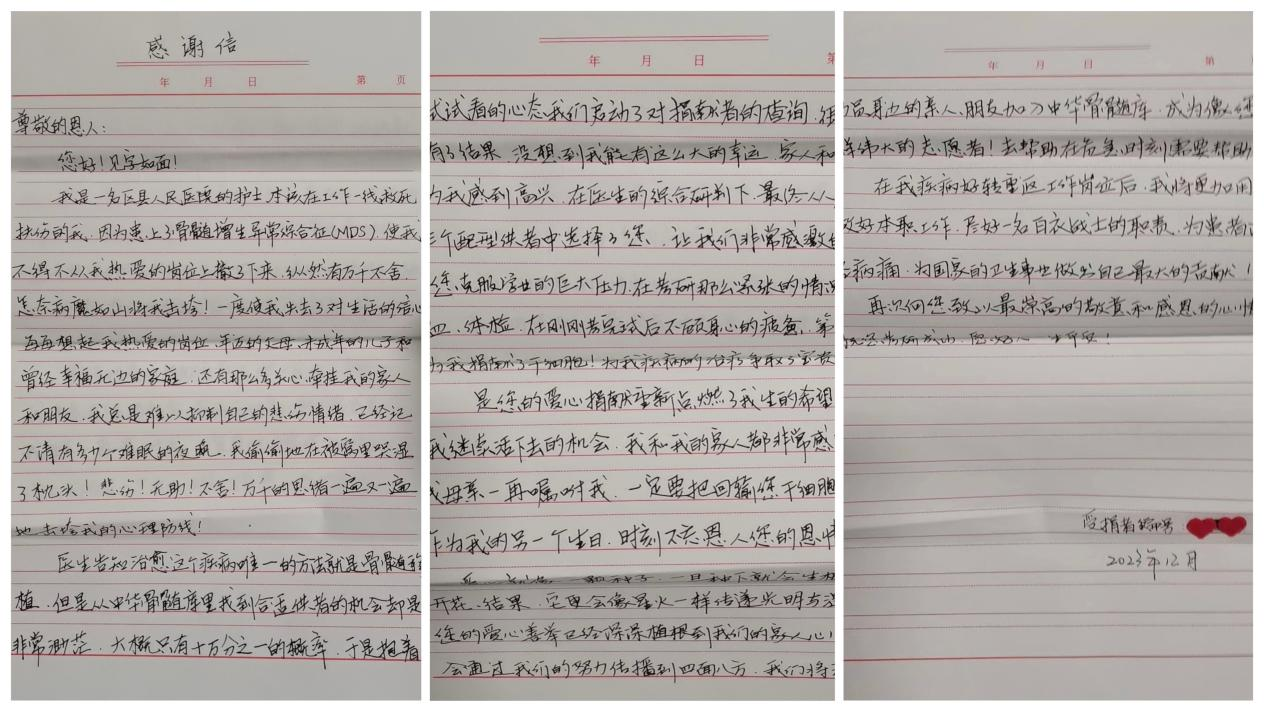 感谢信
年 月 日 第 页
尊敬的恩人:
您好!见字如面!
我是一名区县人民医院的护士,本该在工作一线救死
扶伤的我,因为患上了骨髓增生异常综合征(MDS),使我
不得不从我热爱的岗位上撤了下来,纵然有万千不舍,
怎奈病魔如山将我击垮!一度使我失去了对生活的信心
每每想起我热爱的岗位、年迈的父母、未成年的儿子和
曾经幸福无边的家庭,还有那么多关心、牵挂我的家人
和朋友,我总是难以抑制自己的悲伤情绪,已经记
不清有多少个难眠的夜晚,我偷偷地在被窝里哭湿
了枕头!悲伤!无助!不舍!万千的思绪一遍又一遍
地击垮我的心理防线!
医生告知治愈这个疾病唯一的方法就是骨髓移
植,但是从中华骨髓库里找到合适供者的机会却是
非常渺茫,大概只有十万分之一的概率,于是抱着
年 月 日 第
试试看的心态我们启动了对捐献者的查询,很
有了结果,没想到我能有这么大的幸运,家人和
为我感到高兴,在医生的综合研判下,最终从
三个配型供者中选择了您,让我们非常感激的
您克服学业的巨大压力,在考研那么紧张的情况
血、体检,在刚刚考完试后不顾身心的疲惫,第
为我捐献了干细胞!为我疾病的治疗争取了宝贵
是您的爱心捐献重新点燃了我生的希望
我继续活下去的机会,我和我的家人都非常感
我母亲一再嘱咐我,一定要把回输您干细胞
作为我的另一个生日,时刻不忘恩人您的恩情
一旦种下就会生根
开花、结果,它更会像星火一样传递光明与
您的爱心善举已经深深植根到我们的家人心
会通过我们的努力传播到四面八方,我们将
年 月 日 第
员身边的亲人、朋友加入中华骨髓库,成为像您
样伟大的志愿者!去帮助在危急时刻需要帮助
在我疾病好转重返工作岗位后,我将更加用
做好本职工作,尽好一名白衣战士的职责,为患者
病痛,为国家的卫生事业做出自己最大的贡献!
再次向您致以最崇高的敬意和感恩的心情
您考研成功,愿好人一生平安!
受捐者
2023年12月